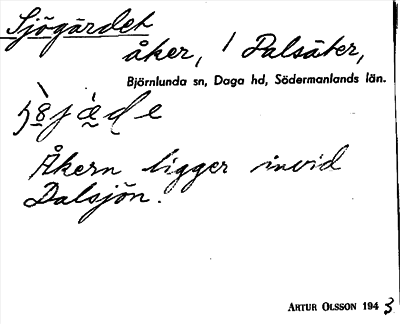 Sjögärdet
åker, / Dalsäter,
Björnlunda sn, Daga hd, Södermanlands län.
Åkern ligger invid
Dalsjön.
ARTUR OLSSON 1943